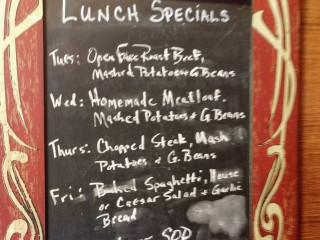 LUNCH SPECIALS
Tues: Open Face Roast Beef,
Mashed Potatoes + G. Beans
Wed: Homemade Meatloaf,
Mashed Potatoes + G. Beans
Thurs: Chopped Steak, Mash
Potatoes + G. Beans
Fri: Baked Spaghetti, House
or Caesar Salad + Garlic
Bread